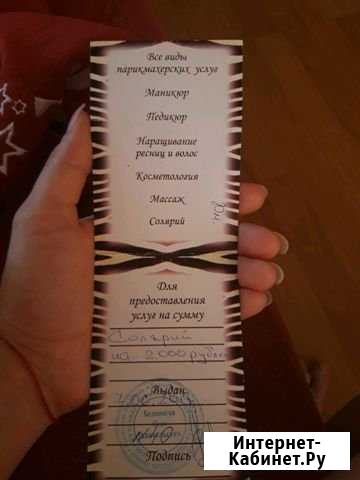 Все виды
парикмахерских услуг
Маникюр
Педикюр
Наращивание
ресниц и волос
Косметология
Массаж
Солярий
Для
предоставления
услуг на сумму
Солярий
на 2000 рублей
Выдан
Подпись
Интернет-
Кабинет.Ру